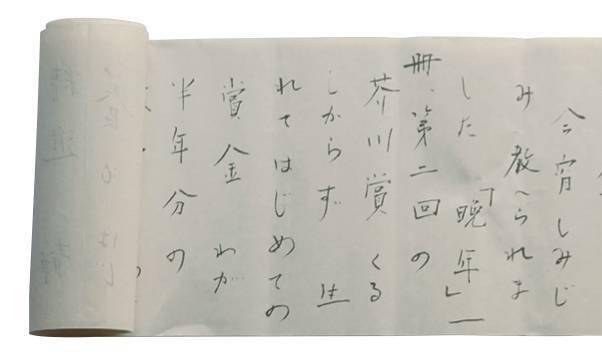 今宵しみじ
み教へられま
した「晩年」一
冊、第二回の
芥川賞くる
しからず 生
れてはじめての
賞金 わが
半年分の